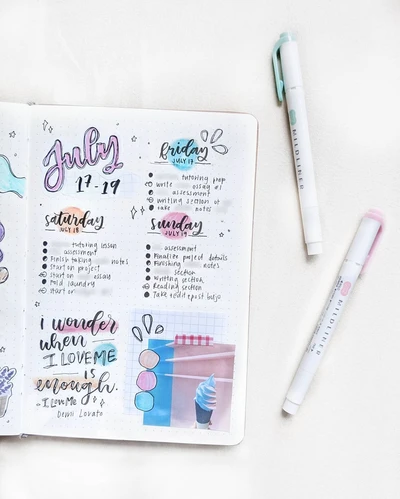 July
17-19
friday
JULY 17
tutoring prep
write essay as
assessment
writing section of
take notes
saturday
JULY 18
tutoring lesson
assessment
Finish taking notes
Start on project
start on essay
Fold laundry
start on
sunday
JULY 19
assessment
Finalize project details
Finishing notes
section
Writing section
Reading section
Take reddit post info
i wonder
when
I LOVE ME
IS
enough.
- I Love Me
Demi Lovato
MILDLINER
MILDLINER